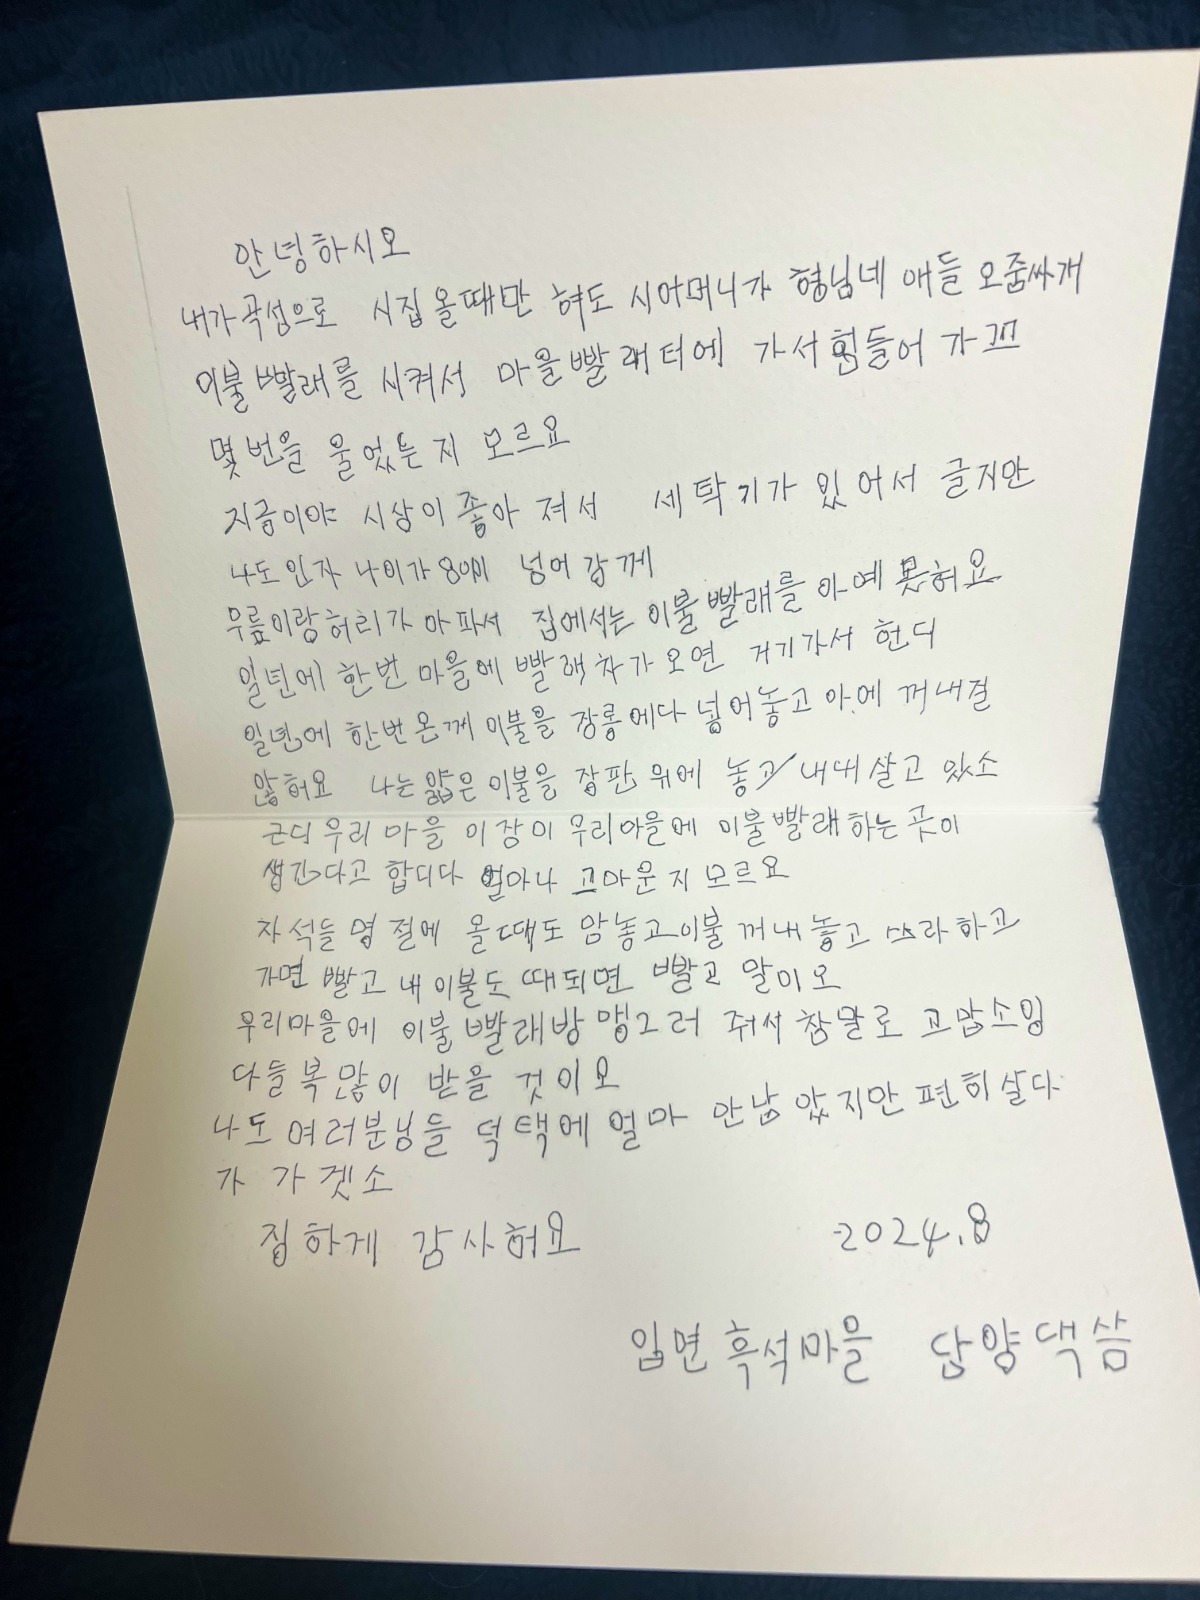 안녕하시오
내가 곡성으로 시집 올때만 혀도 시어머니가 형님네 애들 오줌싸개
이불 빨래를 시켜서 마을빨래터에 가서 힘들어 가꼬
몇번을 울었는지 모르요
지금이야 시상이 좋아 져서 세탁기가 있어서 글지만
나도 인자 나이가 80이 넘어 강께
무릎이랑 허리가 아파서 집에서는 이불빨래를 아예 못혀요
일년에 한번 마을에 빨래차가 오면 거기가서 헌디
일년에 한번 온께 이불을 장롱에다 넣어놓고 아에 꺼내질
않혀요 나는 얇은 이불을 장판 위에 놓고 내내 살고 있소
근디 우리 마을 이장이 우리마을에 이불빨래 하는 곳이
생긴다고 합디다 얼마나 고마운지 모르요
자석들 명절에 올때도 맘놓고 이불 꺼내놓고 쓰라하고
가면 빨고 내 이불도 때되면 빨고 말이오
우리마을에 이불빨래방 맹그러 줘서 참말로 고맙소잉
다들 복많이 받을 것이오
나도 여러분님들 덕택에 얼마 안남았지만 편히살다
가 가겟소
징하게 감사혀요 2024.8
입면 흑석마을 담양댁 씀